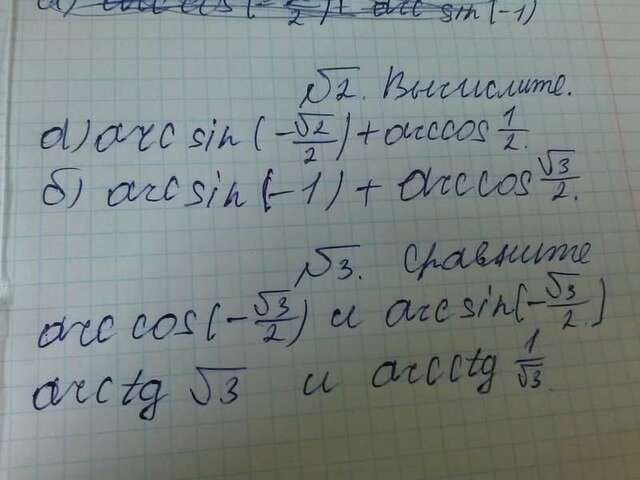 sin(-1)
№2. Вычислите.
а) arcsin(-√2/2)+arccos 1/2.
б) arcsin(-1) + arccos √3/2.
№3. Сравните
arccos(-√3/2) и arcsin(-√3/2)
arctg √3 и arcctg 1/√3.